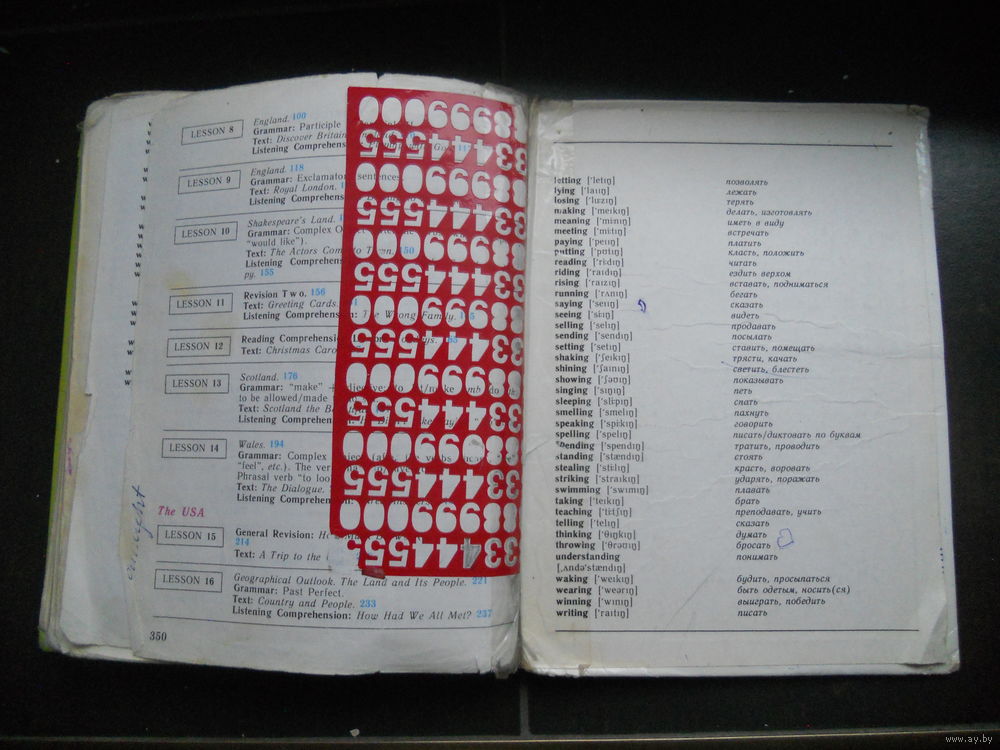 LESSON 8
England. 100
Grammar: Participle
Text: Discover Britain
Listening Comprehens
LESSON 9
England. 118
Grammar: Exclamatory sentences.
Text: Royal London.
Listening Comprehens
LESSON 10
Shakespeare's Land.
Grammar: Complex O
"would like").
Text: The Actors Come to Town. 150
Listening Comprehens
py. 155
LESSON 11
Revision Two. 156
Text: Greeting Cards.
Listening Comprehension: The Wrong Family.
LESSON 12
Reading Comprehensi
Text: Christmas Caro
LESSON 13
Scotland. 176
Grammar: "make" +
to be allowed/made
Text: Scotland the B
Listening Comprehens
LESSON 14
Wales. 194
Grammar: Complex
"feel", etc.). The ver
Phrasal verb "to loo
Text: The Dialogue.
Listening Comprehen
The USA
LESSON 15
General Revision:
214
Text: A Trip to the
LESSON 16
Geographical Outlook. The Land and Its People. 221
Grammar: Past Perfect.
Text: Country and People. 233
Listening Comprehension: How Had We All Met? 237
350
889999000
33444555
889999000
33444555
889999000
33444555
889999000
33444555
889999000
33444555
889999000
33444555
889999000
33444555
letting ['letıŋ] позволять
lying ['laııŋ] лежать
losing ['lu:zıŋ] терять
making ['meıkıŋ] делать, изготовлять
meaning ['mi:nıŋ] иметь в виду
meeting ['mi:tıŋ] встречать
paying ['peııŋ] платить
putting ['pʊtıŋ] класть, положить
reading ['ri:dıŋ] читать
riding ['raıdıŋ] ездить верхом
rising ['raızıŋ] вставать, подниматься
running ['rʌnıŋ] бегать
saying ['seııŋ] сказать
seeing ['si:ıŋ] видеть
selling ['selıŋ] продавать
sending ['sendıŋ] посылать
setting ['setıŋ] ставить, помещать
shaking ['ʃeıkıŋ] трясти, качать
shining ['ʃaınıŋ] светить, блестеть
showing ['ʃəʊıŋ] показывать
singing ['sıŋıŋ] петь
sleeping ['sli:pıŋ] спать
smelling ['smelıŋ] пахнуть
speaking ['spi:kıŋ] говорить
spelling ['spelıŋ] писать/диктовать по буквам
spending ['spendıŋ] тратить, проводить
standing ['stændıŋ] стоять
stealing ['sti:lıŋ] красть, воровать
striking ['straıkıŋ] ударять, поражать
swimming ['swımıŋ] плавать
taking ['teıkıŋ] брать
teaching ['ti:tʃıŋ] преподавать, учить
telling ['telıŋ] сказать
thinking ['θıŋkıŋ] думать
throwing ['θrəʊıŋ] бросать
understanding понимать
[ˌʌndə'stændıŋ]
waking ['weıkıŋ] будить, просыпаться
wearing ['weərıŋ] быть одетым, носить(ся)
winning ['wınıŋ] выиграть, победить
writing ['raıtıŋ] писать
www.ay.by